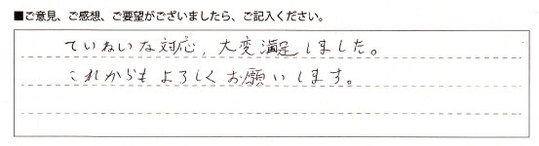 ■ご意見、ご感想、ご要望がございましたら、ご記入ください。
ていねいな対応，大変満足しました。
これからもよろしくお願いします。